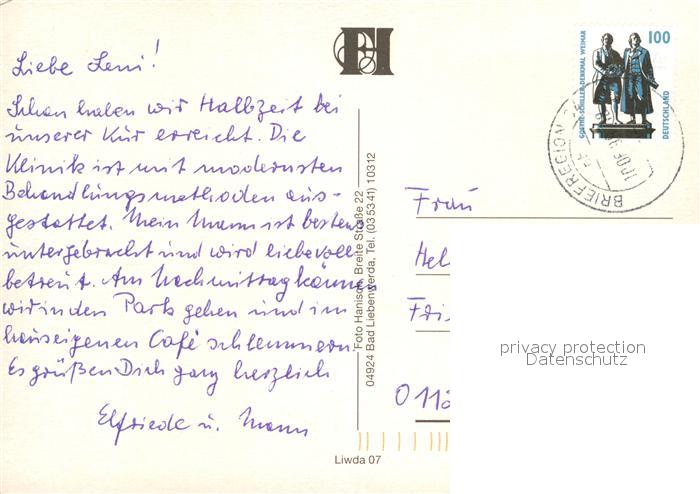 Liebe Leni!
Schon haben wir Halbzeit bei
unserer Kur erreicht. Die
Klinik ist mit modernsten
Behandlungsmethoden aus-
gestattet. Mein Mann ist bestens
untergebracht und wird liebevoll
betreut. Am Nachmittag können
wir in den Park gehen und im
hauseigenen Café schlemmern.
Es grüßen Dich ganz herzlich
Elfriede u. Mann
FH
Foto Hanisch, Breite Straße 22
04924 Bad Liebenwerda, Tel. (035341) 10312
Liwda 07
GOETHE-SCHILLER-DENKMAL WEIMAR
100
DEUTSCHLAND
BRIEFREGION
Frau
Hel
Fri
011
privacy protection
Datenschutz